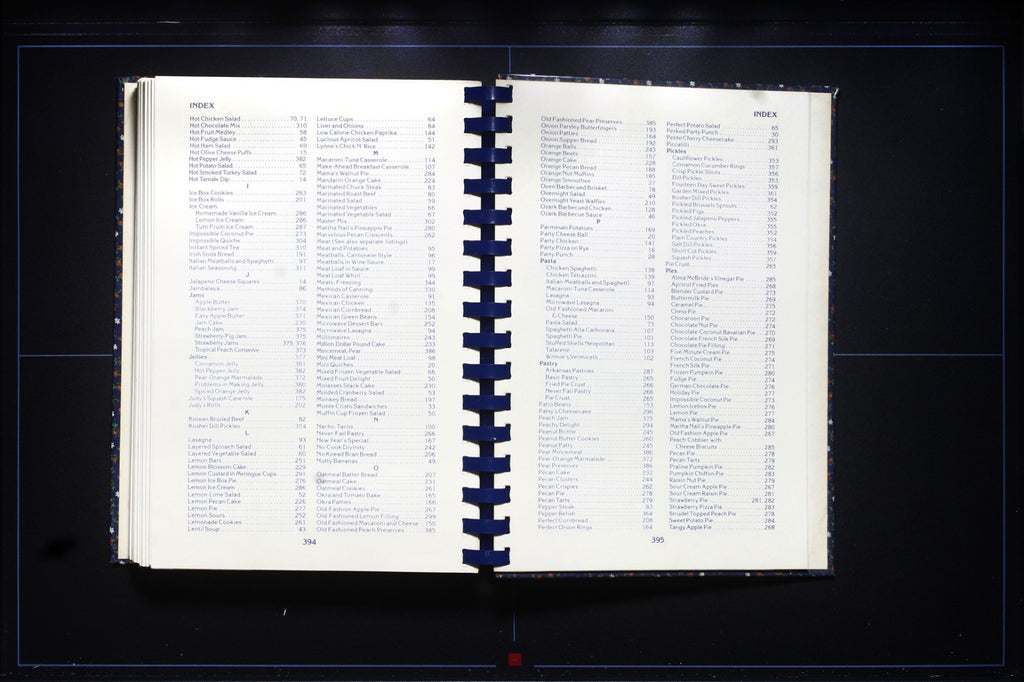 INDEX
Hot Chicken Salad 70, 71
Hot Chocolate Mix 310
Hot Fruit Medley 58
Hot Fudge Sauce 45
Hot Ham Salad 69
Hot Olive Cheese Puffs 15
Hot Pepper Jelly 382
Hot Potato Salad 65
Hot Smoked Turkey Salad 72
Hot Tamale Dip 14
I
Ice Box Cookies 263
Ice Box Rolls 201
Ice Cream
Homemade Vanilla Ice Cream 286
Lemon Ice Cream 286
Tutti Fruiti Ice Cream 287
Impossible Coconut Pie 273
Impossible Quiche 304
Instant Spiced Tea 310
Irish Soda Bread 191
Italian Meatballs and Spaghetti 97
Italian Seasoning 311
J
Jalapeno Cheese Squares 14
Jambalaya 86
Jams
Apple Butter 370
Blackberry Jam 374
Easy Apple Butter 371
Jam Cake 230
Peach Jam 375
Strawberry-Fig Jam 375
Strawberry Jams 375, 376
Tropical Peach Conserve 373
Jellies 377
Cinnamon Jelly 381
Hot Pepper Jelly 382
Pear-Orange Marmalade 372
Problems in Making Jelly 380
Spiced Orange Jelly 382
Judy's Squash Casserole 175
Judy's Rolls 202
K
Korean Broiled Beef 82
Kosher Dill Pickles 354
L
Lasagna 93
Layered Spinach Salad 61
Layered Vegetable Salad 60
Lemon Bars 251
Lemon Blossom Cake 229
Lemon Custard in Meringue Cups 291
Lemon Ice Box Pie 276
Lemon Ice Cream 286
Lemon Lime Salad 52
Lemon Pecan Cake 226
Lemon Pie 277
Lemon Sours 252
Lemonade Cookies 261
Lentil Soup 43
Lettuce Cups 64
Liver and Onions 84
Low Calorie Chicken Paprika 144
Luscious Apricot Salad 51
Lynne's Chick N' Rice 142
M
Macaroni-Tuna Casserole 114
Make-Ahead Breakfast Casserole 107
Mama's Walnut Pie 284
Mandarin Orange Cake 224
Marinated Chuck Steak 83
Marinated Roast Beef 80
Marinated Salad 59
Marinated Vegetables 66
Marinated Vegetable Salad 67
Master Mix 302
Martha Nall's Pineapple Pie 280
Marvelous Pecan Crescents 262
Meat (See also separate listings)
Meat and Potatoes 95
Meatballs, Cantonese Style 96
Meatballs in Wine Sauce 17
Meat Loaf in Sauce 99
Meat Loaf Whirl 99
Meats, Freezing 344
Methods of Canning 330
Mexican Casserole 91
Mexican Chicken 135
Mexican Cornbread 208
Mexican Green Beans 154
Microwave Dessert Bars 252
Microwave Lasagna 94
Millionaires 243
Million Dollar Pound Cake 233
Mincemeat, Pear 386
Mini Meat Loaf 98
Mini Quiches 20
Mixed Frozen Vegetable Salad 66
Mixed Fruit Delight 50
Molasses Stack Cake 230
Molded Cranberry Salad 53
Monkey Bread 197
Monte Cristo Sandwiches 33
Muffin Cup Frozen Salad 50
N
Nacho Tacos 100
Never Fail Pastry 266
New Year's Special 167
No Cook Divinity 242
No Knead Bran Bread 206
Nutty Bananas 49
O
Oatmeal Batter Bread 207
Oatmeal Cake 231
Oatmeal Cookies 261
Okra and Tomato Bake 165
Okra Patties 166
Old Fashion Apple Pie 267
Old Fashioned Lemon Filling 299
Old Fashioned Macaroni and Cheese 150
Old Fashioned Peach Preserves 385
394
INDEX
Old Fashioned Pear Preserves 385
Onion Parsley Butterfingers 193
Onion Patties 164
Onion Supper Bread 192
Orange Balls 243
Orange Beets 157
Orange Cake 228
Orange Pecan Bread 188
Orange Nut Muffins 185
Orange Smoothee 27
Oven Barbecued Brisket 78
Overnight Salad 49
Overnight Yeast Waffles 210
Ozark Barbecued Chicken 128
Ozark Barbecue Sauce 46
P
Parmesan Potatoes 169
Party Cheese Ball 20
Party Chicken 141
Party Pizza on Rye 16
Party Punch 28
Pasta
Chicken Spaghetti 138
Chicken Tetrazzini 139
Italian Meatballs and Spaghetti 97
Macaroni Tuna Casserole 114
Lasagna 93
Microwave Lasagna 94
Old Fashioned Macaroni
& Cheese 150
Pasta Salad 73
Spaghetti Alla Carbonara 107
Spaghetti Pie 101
Stuffed Shells Neopolitan 113
Talarene 103
Winnie's Vermicelli 102
Pastry
Arkansas Pastries 287
Basic Pastry 265
Fried Pie Crust 266
Never Fail Pastry 266
Pie Crust 265
Patio Beans 153
Patsy's Cheesecake 296
Peach Jam 375
Peachy Delight 294
Peanut Brittle 245
Peanut Butter Cookies 260
Peanut Patty 245
Pear Mincemeat 386
Pear-Orange Marmalade 372
Pear Preserves 386
Pecan Cake 232
Pecan Clusters 244
Pecan Crispies 262
Pecan Pie 278
Pecan Tarts 279
Pepper Steak 83
Pepper Relish 364
Perfect Cornbread 208
Perfect Onion Rings 164
Perfect Potato Salad 65
Perked Party Punch 30
Petite Cherry Cheesecake 293
Piccalilli 361
Pickles
Cauliflower Pickles 353
Cinnamon Cucumber Rings 357
Crisp Pickle Slices 356
Dill Pickles 353
Fourteen Day Sweet Pickles 359
Garden Mixed Pickles 361
Kosher Dill Pickles 354
Pickled Brussels Sprouts 62
Pickled Figs 352
Pickled Jalapeno Peppers 355
Pickled Okra 355
Pickled Peaches 352
Plain Country Pickles 354
Salt Dill Pickles 356
Short Cut Pickles 358
Squash Pickles 357
Pie Crust 265
Pies
Alma McBride's Vinegar Pie 285
Apricot Fried Pies 268
Blender Custard Pie 273
Buttermilk Pie 269
Caramel Pie 275
Chess Pie 272
Chocaroon Pie 272
Chocolate Nut Pie 274
Chocolate Coconut Bavarian Pie 270
Chocolate French Silk Pie 269
Chocolate Pie Filling 271
Five-Minute Cream Pie 275
French Coconut Pie 274
French Silk Pie 271
Frozen Pumpkin Pie 280
Fudge Pie 274
German Chocolate Pie 276
Holiday Pie 277
Impossible Coconut Pie 273
Lemon Icebox Pie 276
Lemon Pie 277
Mama's Walnut Pie 284
Martha Nall's Pineapple Pie 280
Old Fashion Apple Pie 267
Peach Cobbler with
Cheese Biscuits 285
Pecan Pie 278
Pecan Tarts 279
Praline Pumpkin Pie 282
Pumpkin Chiffon Pie 283
Raisin Nut Pie 279
Sour Cream Apple Pie 267
Sour Cream Raisin Pie 281
Strawberry Pie 281, 282
Strawberry Pizza Pie 283
Strudel Topped Peach Pie 278
Sweet Potato Pie 284
Tangy Apple Pie 268
395